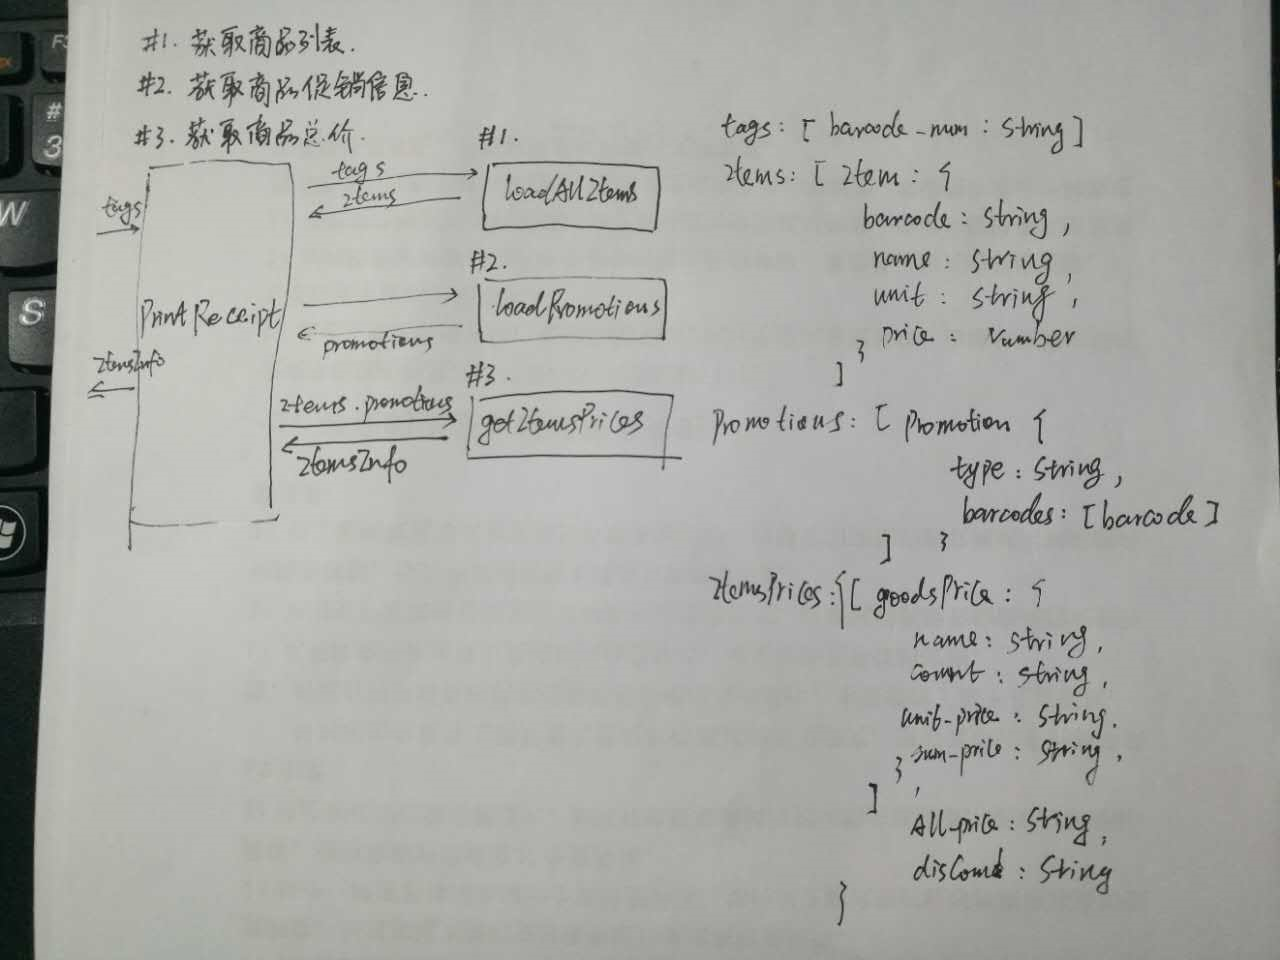 #1. 获取商品列表.
#2. 获取商品促销信息.
#3. 获取商品总价.
tags
PrintReceipt
ItemsInfo
tags
Items
#1.
loadAllItems
#2.
loadPromotions
promotions
#3.
Items.promotions
getItemsPrices
ItemsInfo
tags: [ barcode-num : String ]
Items: [ Item : {
barcode : String ,
name : String ,
unit : String ,
price : Number
}
]
Promotions: [ Promotion {
type : String ,
barcodes: [barcode]
}
]
ItemsPrices: { [ goodsPrice : {
name: String ,
Count : String ,
unit-price : String.
sum-price : String ,
}
] ,
All-price : String ,
disCount : String
}
F3
#
3
W
S